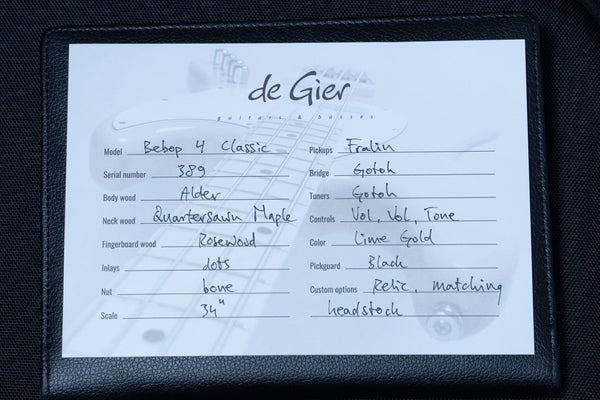 de Gier
guitars & basses
Model Bebop 4 Classic
Serial number 389
Body wood Alder
Neck wood Quartersawn Maple
Fingerboard wood Rosewood
Inlays dots
Nut bone
Scale 34"
Pickups Fralin
Bridge Gotoh
Tuners Gotoh
Controls Vol, Vol, Tone
Color Lime Gold
Pickguard Black
Custom options Relic, matching
headstock